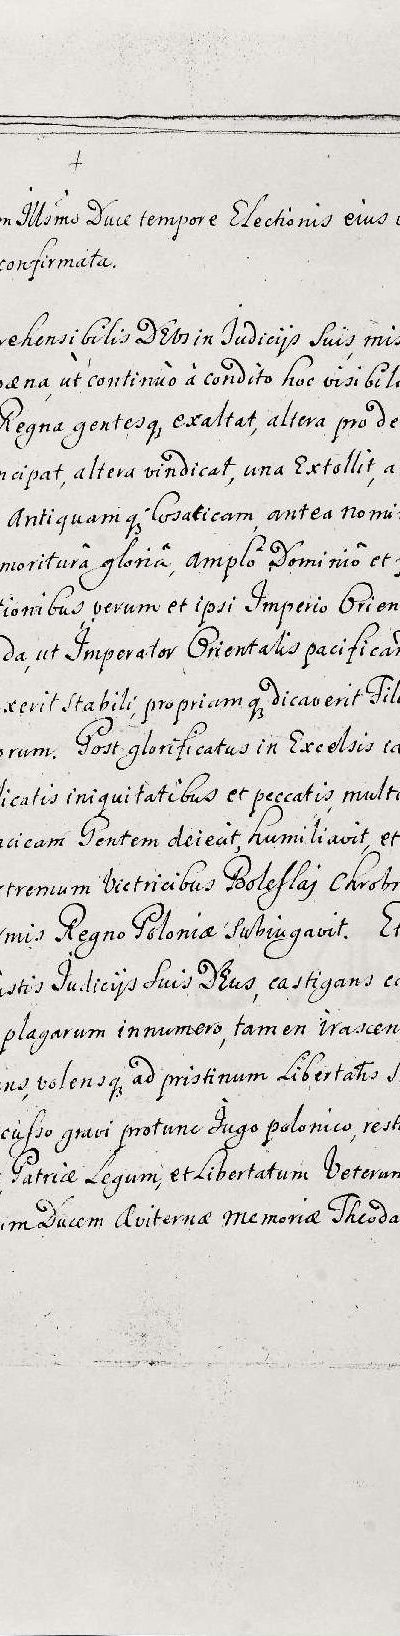 Illsmo Duce tempore Electionis eius
confirmata.
rehensibilis DEus in Judicijs Suis, mis
pæna, ut continuò à condito hoc visibili
Regna gentesq, exaltat, altera pro de
ncipat, altera vindicat, una Extollit, a
Antiquamq, Cosaticam, antea nomi
moriturâ gloriâ, amplô Dominiô et
tionibus, verum et ipsi Imperio Orien
da, ut Imperator Orientalis pacifican
xerit stabili, propriamq, dicaverit Fili
orum. Post glorificatus in Excelsis
licatis iniquitatibus et peccatis, multo
acicam Gentem deiecit, humiliavit, et
xtremum Victricibus Boleslaj Chrobr
rmis Regno Poloniæ subiugavit. Et
ustis Judicijs Suis DEus, castigans
plagarum innumero, tamen irascen
ens, volensq, ad pristinum Libertatis s
cusso gravi protunc Jugo polonico, rest
Patriæ Legum, et Libertatum Veterum
um Ducem Æviternæ memoriæ Theoda